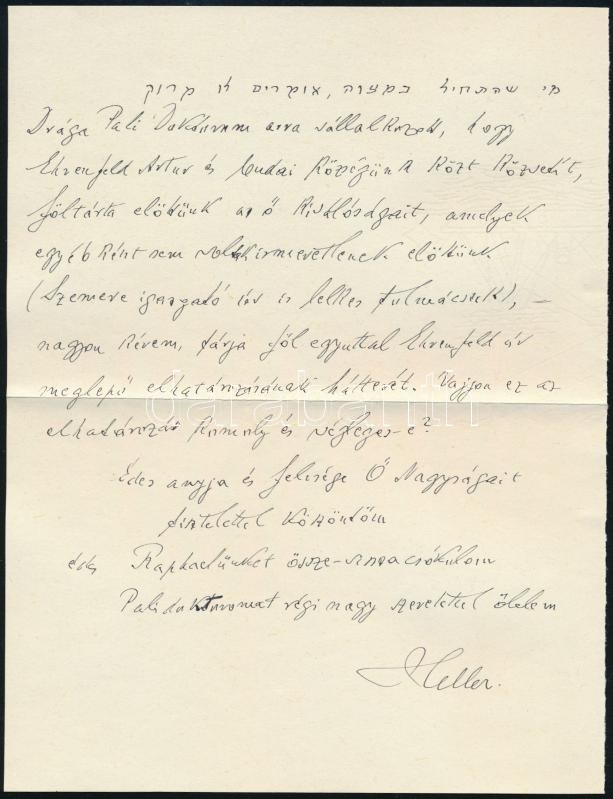 מי שהתחיל במצוה, אומרים לו מרוק
Drága Pali Doktorom arra vállalkozott, hogy
Ehrenfeld Artur és budai községünk közt közvetít,
föltárta előttünk az ő kiválóságait, amelyek
egyébként sem voltak ismeretlenek előttünk
(Szemere igazgató úr is lelkes tolmácsuk), —
nagyon kérem, tárja föl egyuttal Ehrenfeld úr
meglepő elhatározásának hátterét. Vajjon ez az
elhatározás komoly és végleges-e?
Édes anyja és felesége Ő Nagyságait
tisztelettel köszöntöm
édes Raphaelünket össze-vissza csókolom
Pali doktoromat régi nagy szeretettel ölelem
Heller.
darabanth